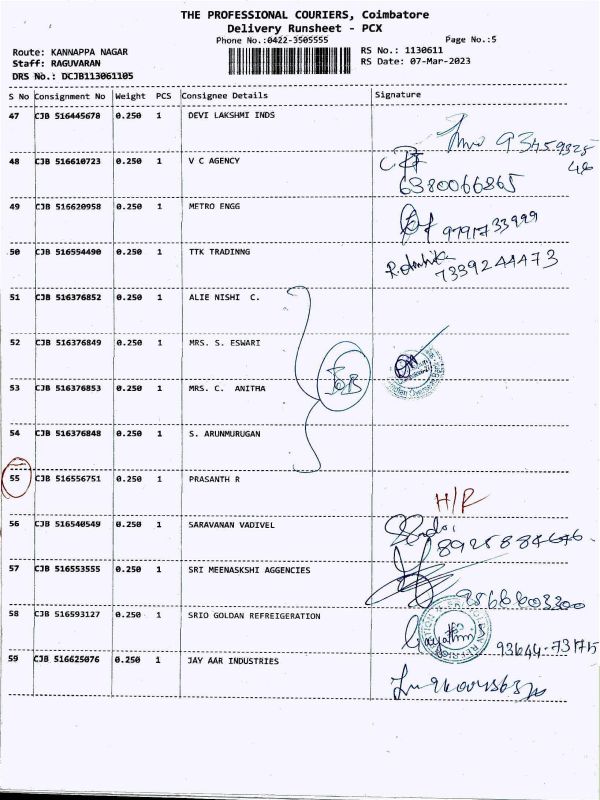 THE PROFESSIONAL COURIERS, Coimbatore
Delivery Runsheet - PCX
Phone No.:0422-3505555 Page No.:5
Route: KANNAPPA NAGAR RS No.: 1130611
Staff: RAGUVARAN RS Date: 07-Mar-2023
DRS No.: DCJB113061105
S No Consignment No Weight PCS Consignee Details Signature
47 CJB 516445678 0.250 1 DEVI LAKSHMI INDS
48 CJB 516610723 0.250 1 V C AGENCY
6380066865
49 CJB 516620958 0.250 1 METRO ENGG
9791733999
50 CJB 516554490 0.250 1 TTK TRADINNG
7339244473
51 CJB 516376852 0.250 1 ALIE NISHI C.
52 CJB 516376849 0.250 1 MRS. S. ESWARI
53 CJB 516376853 0.250 1 MRS. C. ANITHA
IOB
54 CJB 516376848 0.250 1 S. ARUNMURUGAN
55 CJB 516556751 0.250 1 PRASANTH R
H/R
56 CJB 516540549 0.250 1 SARAVANAN VADIVEL
57 CJB 516553555 0.250 1 SRI MEENASKSHI AGGENCIES
58 CJB 516593127 0.250 1 SRIO GOLDAN REFREIGERATION
93644-73175
59 CJB 516625076 0.250 1 JAY AAR INDUSTRIES